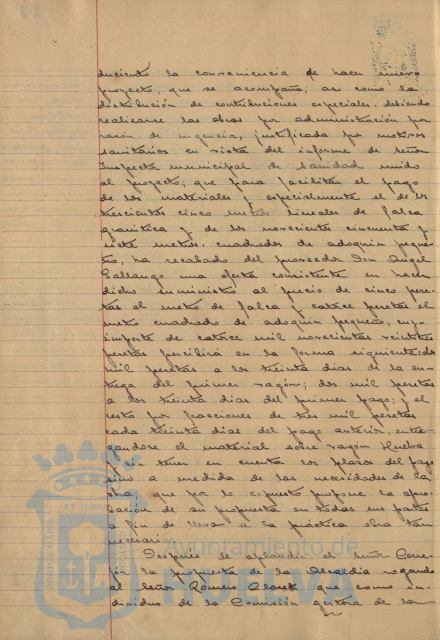 duciendo la conveniencia de hacer nuevo
proyecto, que se acompaña, asi como la
distribución de contribuciones especiales, debiendo
realizarse las obras por administración por
razón de urgencia, justificada por motivos
sanitarios en vista del informe de señor
Inspector municipal de Sanidad unido
al proyecto; que para facilitar el pago
de los materiales y especialmente el de los
trescientos cinco metros lineales de falca
granitica y de los novecientos cincuenta y
siete metros cuadrados de adoquin peque
ño, ha recabado del proveedor Don Angel
Gallango una oferta consistente en hacer
dicho suministro al precio de cinco pese
tas el metro de falca y catorce pesetas el
metro cuadrado de adoquin pequeño, cuyo
importe de catorce mil novecientas veintitres
pesetas percibirá en la forma siguiente: dos
mil pesetas a los treinta dias de la en
trega del primer vagón; dos mil pesetas
a los treinta dias del primer pago; y el
resto por fracciones de tres mil pesetas
cada treinta dias del pago anterior, entre
gandose el material sobre vagón Huelva
y sin tener en cuenta los plazos del pago
sino a medida de las necesidades de la
obra; que por lo expuesto propone la apro
bación de su propuesta en todas sus partes
a fin de llevar a la práctica obra tan
necesaria.
Despues de aplaudir el señor
la propuesta de la Alcaldia rogando
al señor Romero Claret que como in
dividuo de la Comisión gestora de la
Ayuntamiento de
HUELVA